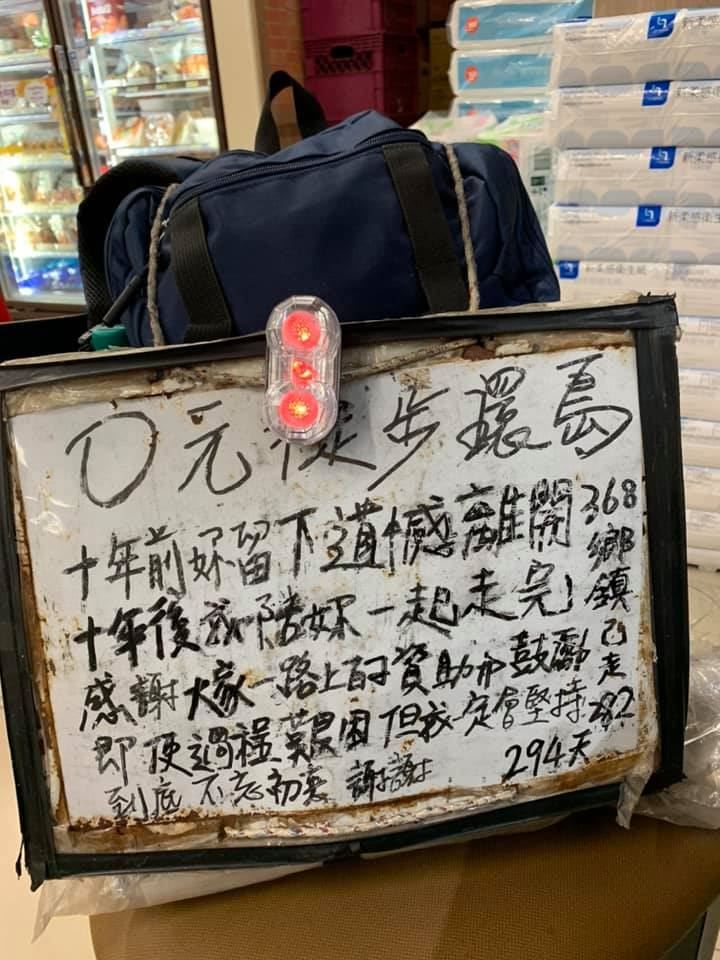 0元徒步環島
十年前妳留下遺憾離開
十年後我陪妳一起走完
感謝大家一路上的資助和鼓勵
即便過程艱困但我一定會堅持
到底 不忘初衷 謝謝
294天
368鄉鎮已走282
新柔感衛生紙